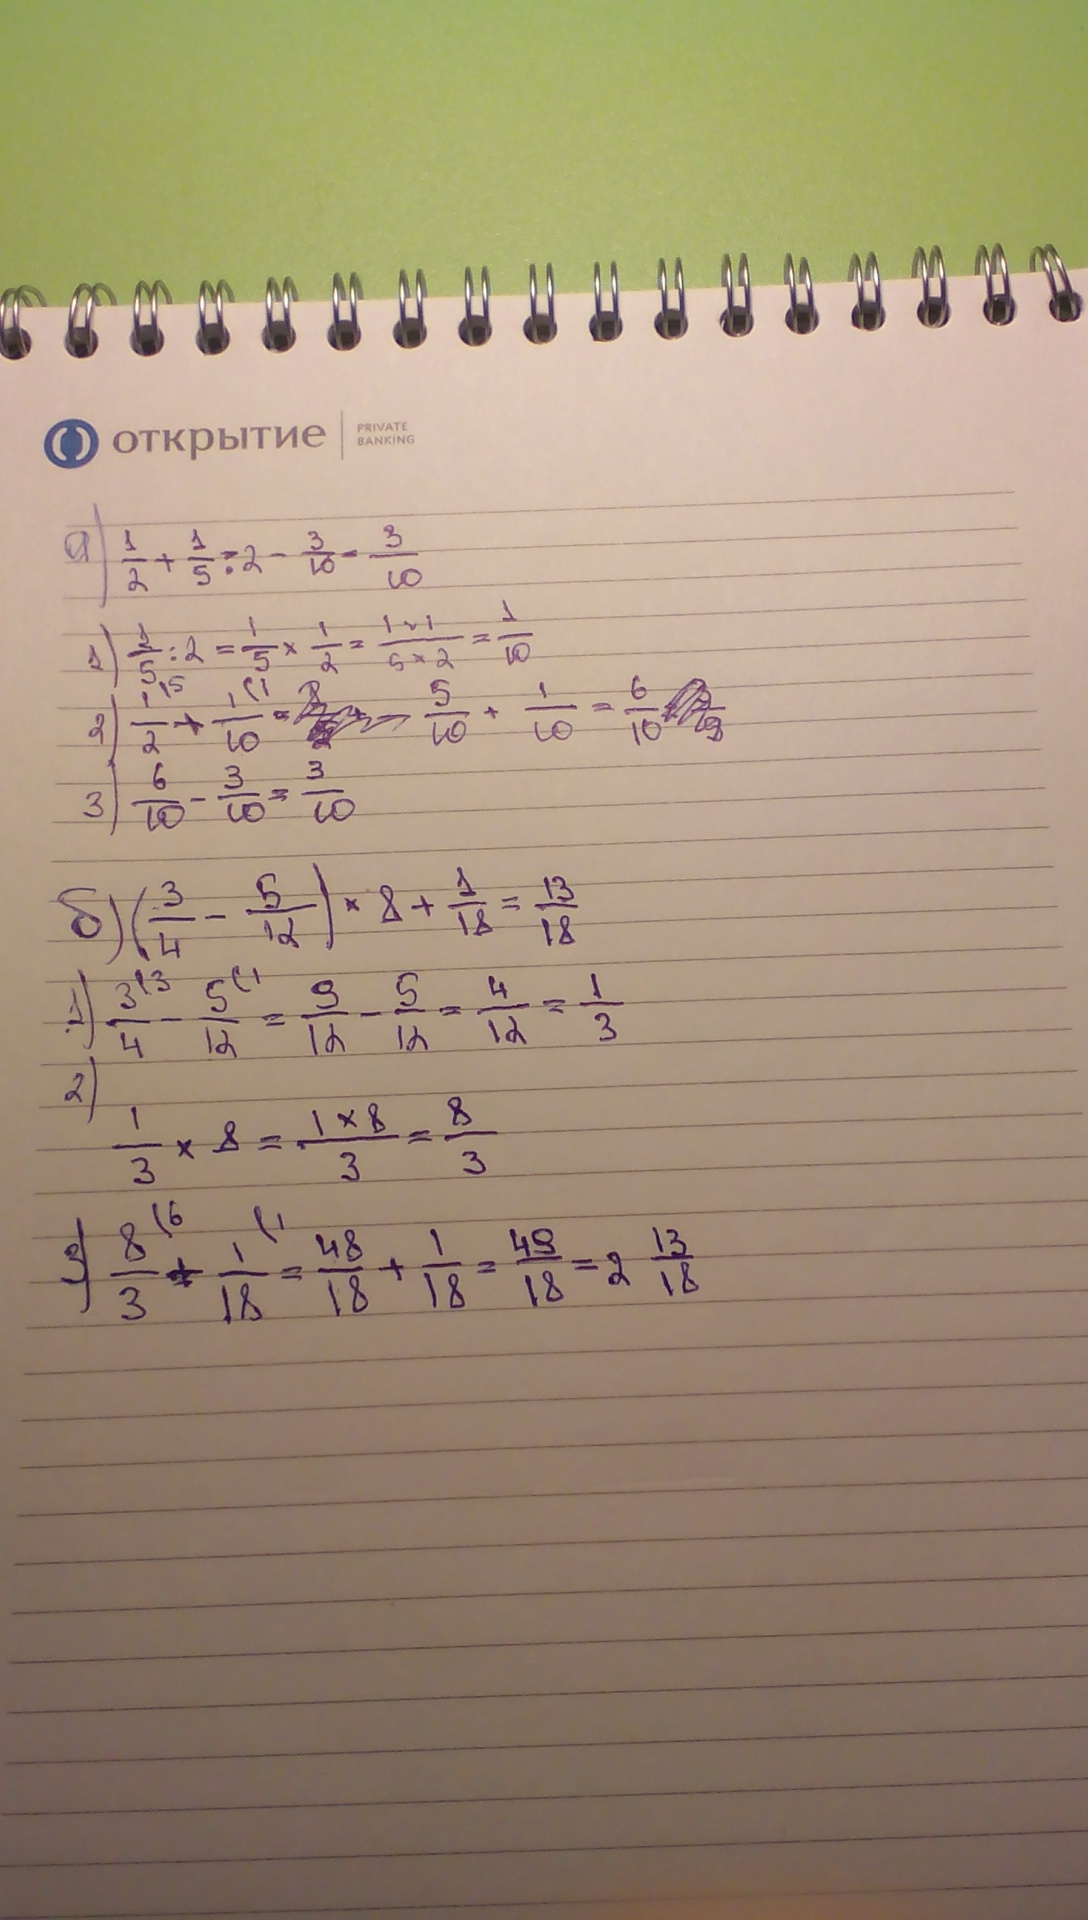 ОТКРЫТИЕ PRIVATE BANKING
а) 1/2 + 1/5 : 2 - 3/10 = 3/10
1) 1/5 : 2 = 1/5 × 1/2 = 1×1/5×2 = 1/10
2) 1(5/2 + 1(1/10 = 5/10 + 1/10 = 6/10
3) 6/10 - 3/10 = 3/10
б) (3/4 - 5/12) × 8 + 1/18 = 13/18
1) 3(3/4 - 5(1/12 = 9/12 - 5/12 = 4/12 = 1/3
2)
1/3 × 8 = 1×8/3 = 8/3
3) 8(6/3 + 1(1/18 = 48/18 + 1/18 = 49/18 = 2 13/18